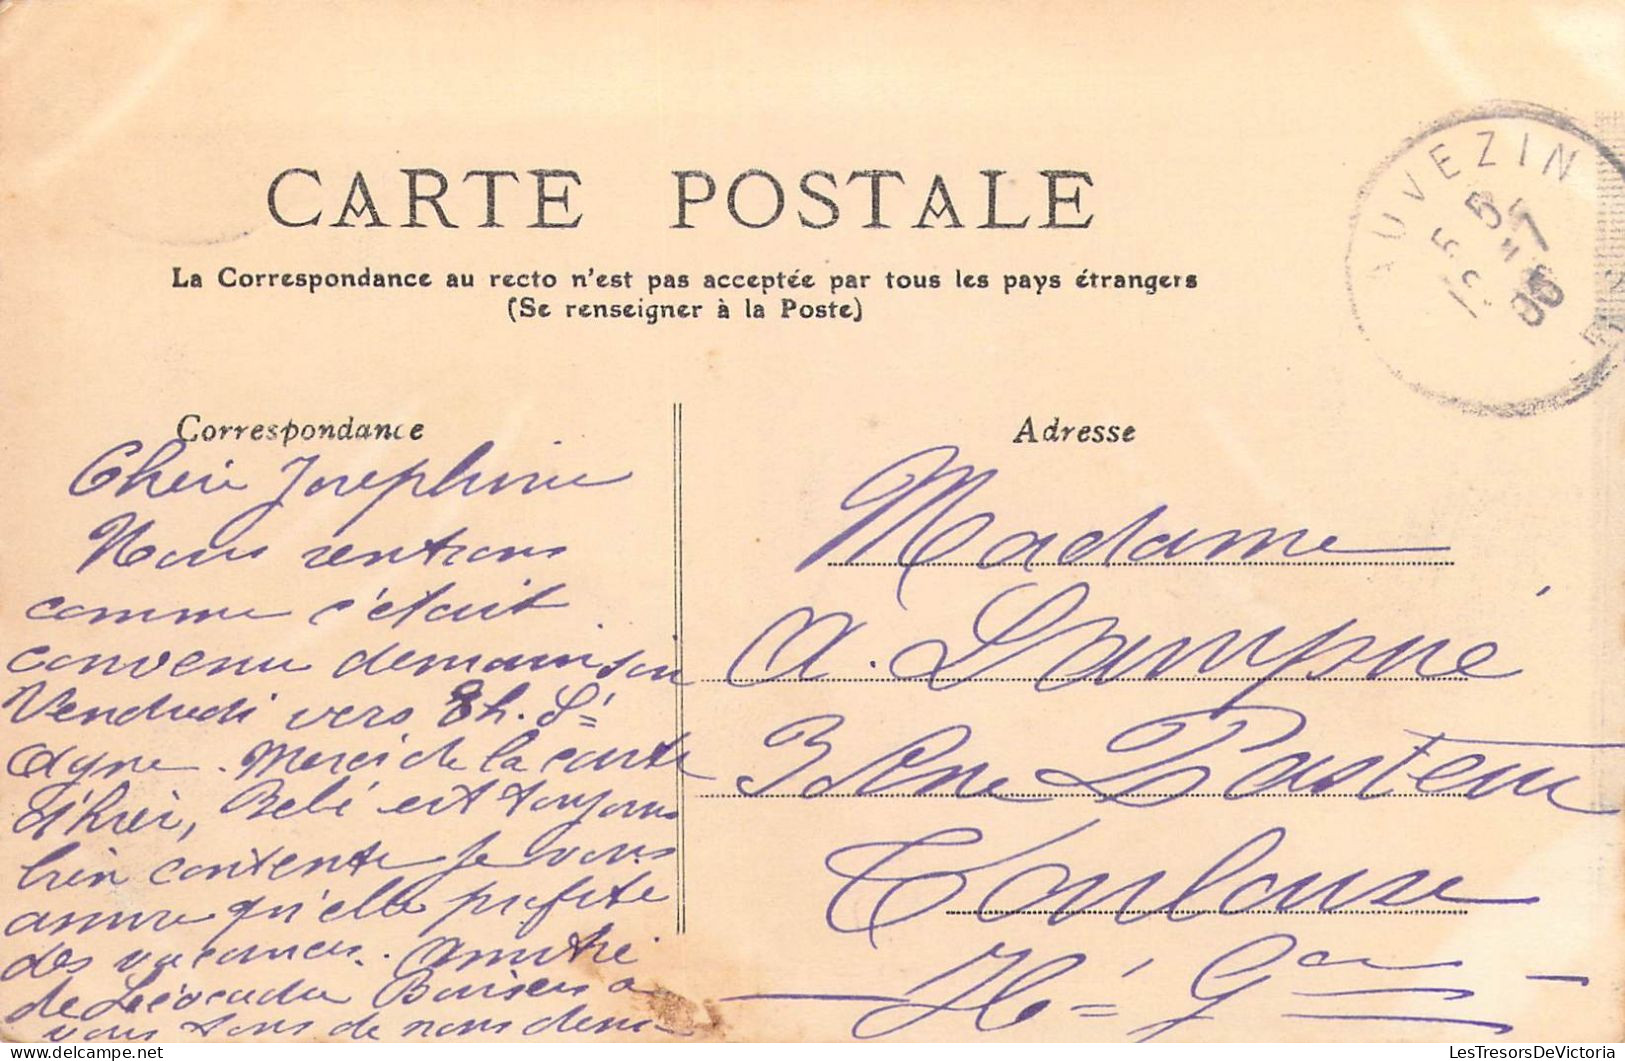 CARTE POSTALE
La Correspondance au recto n'est pas acceptée par tous les pays étrangers
(Se renseigner à la Poste)
AUVEZIN
Correspondance
Chère Josephine
Nous rentrons
comme c'était
convenu demain soir
Vendredi vers 8h. St=
Agne. Merci de la carte
d'hier, Bébé est toujours
bien contente je vous
assure qu'elle profite
des vacances. Amitié
de Léocadie Baisers à
vous tous de nous deux
Adresse
Madame
A. Lampué
3 Rue Pasteur
Toulouse
Hte= Gar
LesTresorsDeVictoria